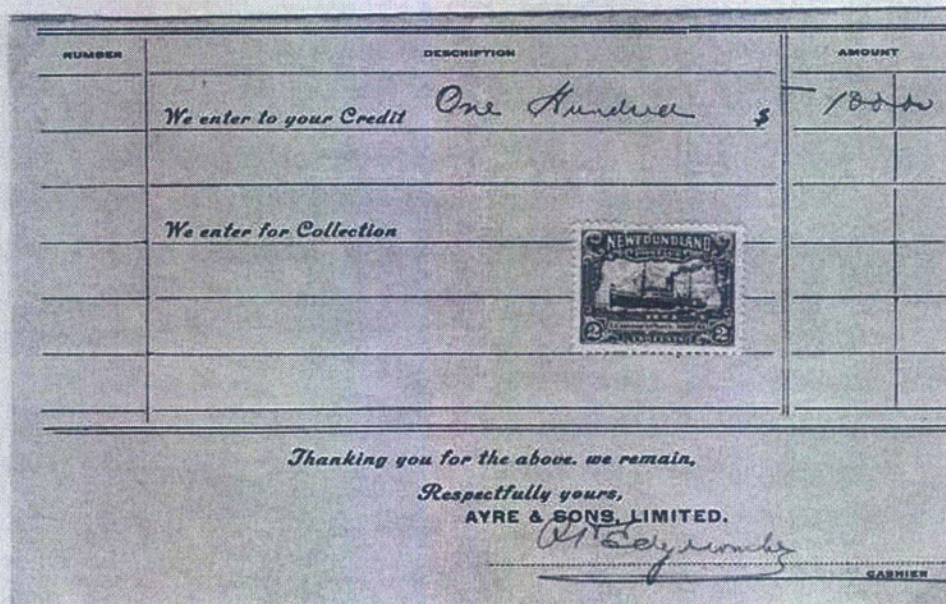 NUMBER DESCRIPTION AMOUNT
We enter to your Credit One Hundred $ 100 00
We enter for Collection
NEWFOUNDLAND
2 2
Thanking you for the above. we remain,
Respectfully yours,
AYRE & SONS, LIMITED.
CASHIER